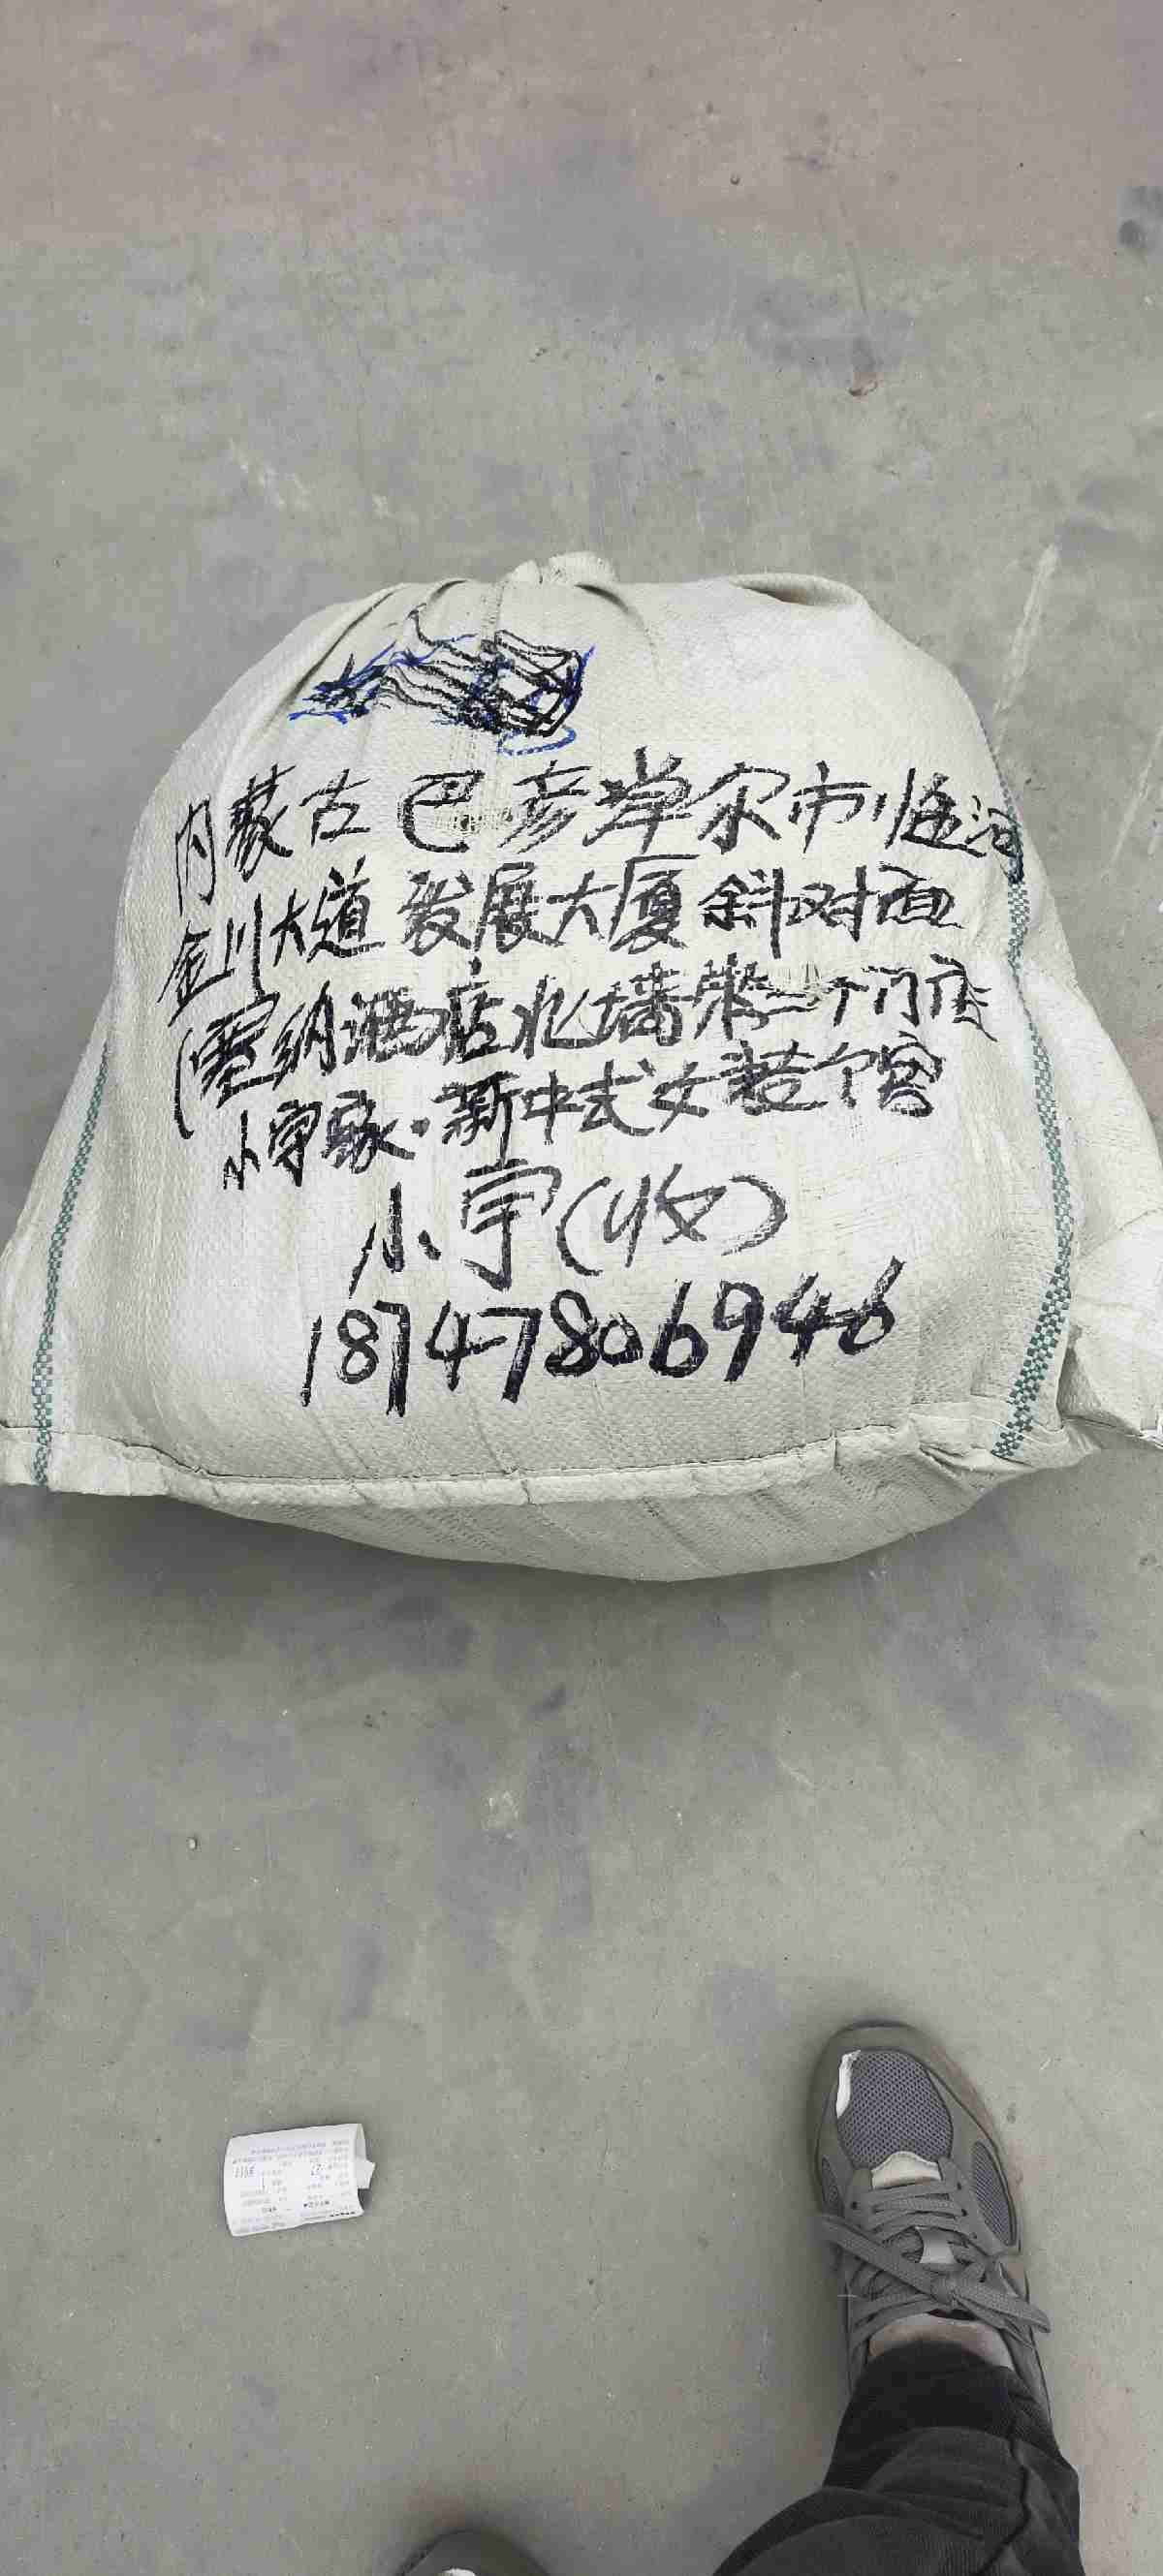 内蒙古巴彦淖尔市临河
金川大道发展大厦斜对面
(塞纳酒店北墙第一个门店
小宇家·新中式女装个宫
小宇(收)
18747806946